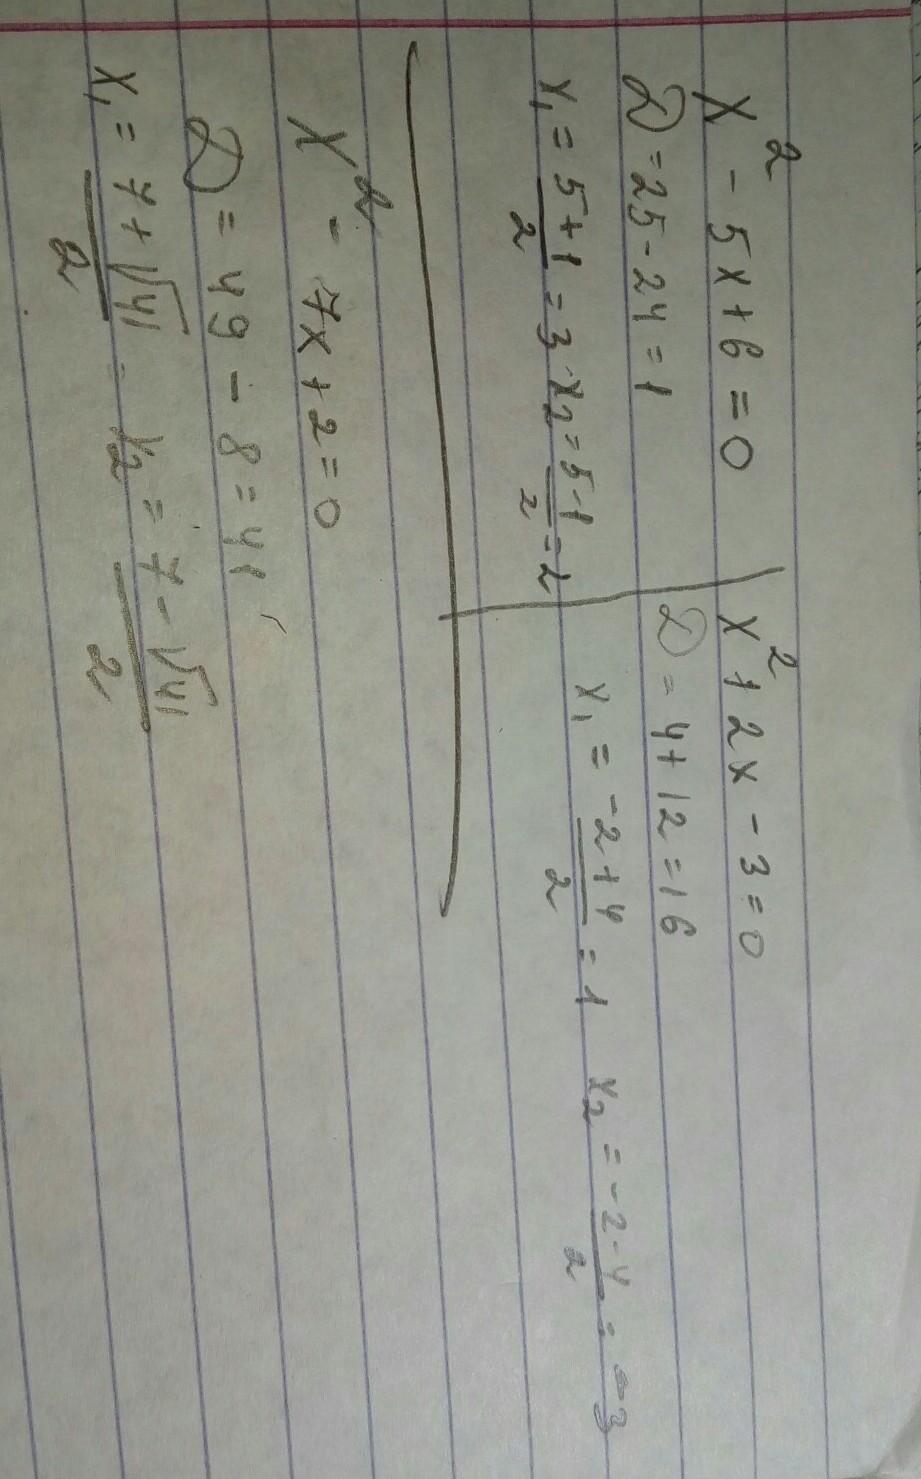 x² - 5x + 6 = 0
D = 25 - 24 = 1
x₁ = (5+1)/2 = 3 x₂ = (5-1)/2 = 2
x² + 2x - 3 = 0
D = 4 + 12 = 16
x₁ = (-2+4)/2 = 1 x₂ = (-2-4)/2 = -3
x² - 7x + 2 = 0
D = 49 - 8 = 41
x₁ = (7+√41)/2 x₂ = (7-√41)/2